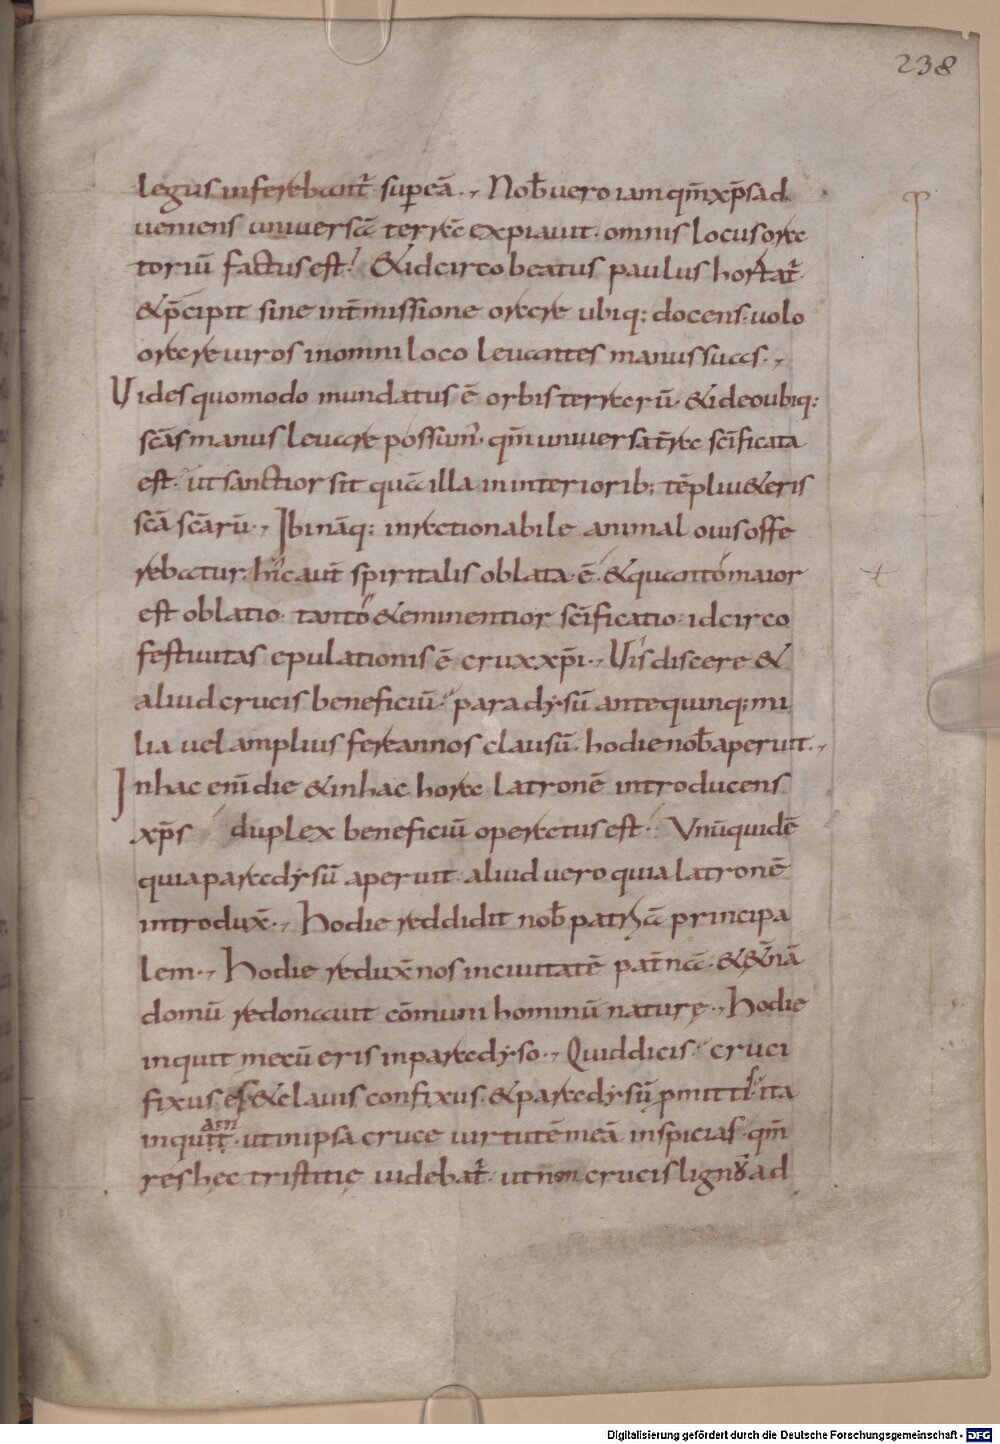 238
legus inferebant᷑ sup̱ eā., Nob̄ uero iam qm̄ xp̄s ad
ueniens uniuersā terrā expiauit. omnis locus ora
toriū factus est; &idcirco beatus paulus hortat᷑.
&p̄cipit sine int̄missione orare ubiq; docens. uolo
orare uiros in omni loco leuantes manus suas.,
Uides quomodo mundatus ē orbis terrarū. &ideo ubiq;
sc̄as manus leuare possum᷒. qm̄ uniuersa t̄ra sc̄ificata
est. ut sanctior sit quā illa in interiorib; tēpli u&eris
sc̄a sc̄arū., Ibi nāq; inrationabile animal ouis offe
rebatur. hic aut̄ spiritalis oblata ē. &quanto maior
est oblatio. tanto &eminentior sc̄ificatio. idcirco
festiuitas epulationis ē crux xp̄i., Uis discere &
aliud crucis beneficiū. paradysū ante quinq; mi
lia uel amplius fere annos clausū. hodie nob̄ aperuit.,
In hac eni᷑ die &in hac hora latronē introducens
xp̄s duplex beneficiū operatus est. Unū quidē
quia paradysū aperuit. aliud vero quia latronē
introdux̄., Hodie reddidit nob̄ patriā principa
lem., Hodie redux̄ nos in ciuitatē pat̄nā. &æt̄nā
domū redonauit cōmuni hominū naturę., Hodie
inquit mecū eris in paradyso., Quid dicis; cruci
fixus es &clauis confixus. &paradysū p̱mittis. ita
am
inquit. ut in ipsa cruce uirtutē meā inspicias. qm̄
res hęc tristitię uidebat᷑. ut non crucis lignū ad
Digitalisierung gefördert durch die Deutsche Forschungsgemeinschaft - DFG